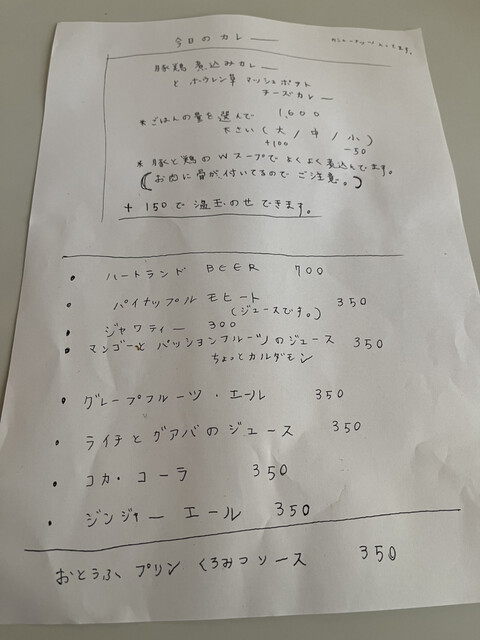 今日のカレー
豚鶏煮込みカレー
とホウレン草マッシュポテト
チーズカレー
*ごはんの量を選んで 1,600
下さい(大/中/小)
+100 -50
*豚と鶏のWスープでよくよく煮込んでます。
(お肉に骨が付いてるのでご注意。)
+150で温玉のせできます。
• ハートランド BEER 700
• パイナップルモヒート 350
(ジュースです。)
• ジャワティー 300
• マンゴーとパッションフルーツのジュース 350
ちょっとカルダモン
• グレープフルーツ・エール 350
• ライチとグアバのジュース 350
• コカ・コーラ 350
• ジンジャーエール 350
おとうふプリン くろみつソース 350